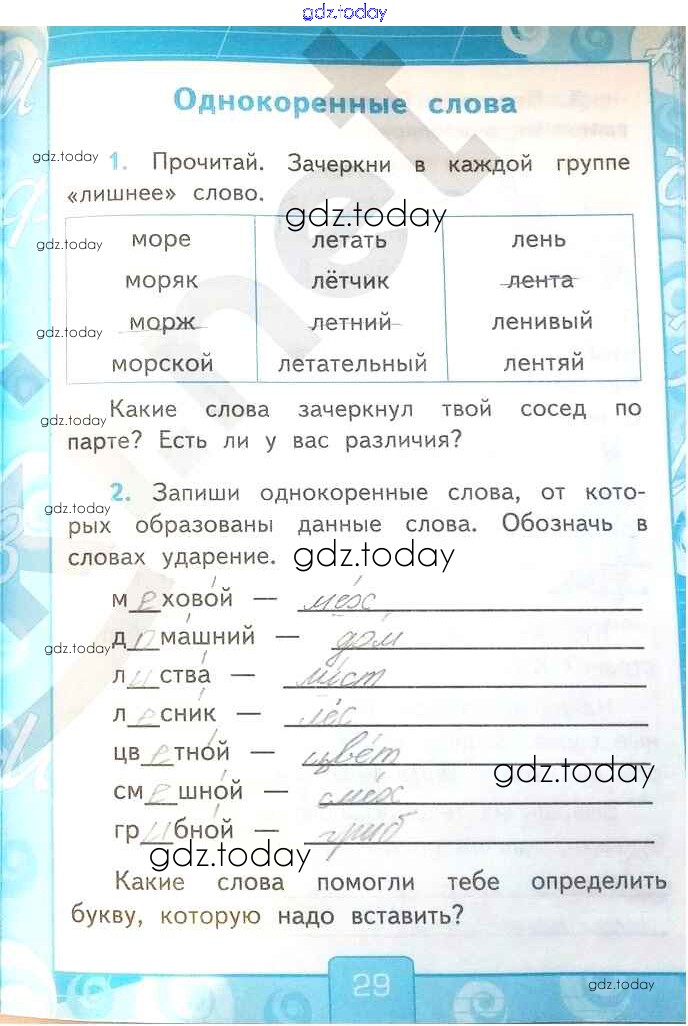 gdz.today
Однокоренные слова
gdz.today 1. Прочитай. Зачеркни в каждой группе
«лишнее» слово.
gdz.today
море летать лень
gdz.today
моряк лётчик лента
морж летний ленивый
gdz.today
морской летательный лентяй
Какие слова зачеркнул твой сосед по
gdz.today
парте? Есть ли у вас различия?
2. Запиши однокоренные слова, от кото-
gdz.today
рых образованы данные слова. Обозначь в
словах ударение. gdz.today
меховой — мех
домашний — дом
gdz.today
листва — лист
лесник — лес
цветной — цвет
gdz.today
смешной — смех
грибной — гриб
gdz.today
Какие слова помогли тебе определить
букву, которую надо вставить?
29
gdz.today